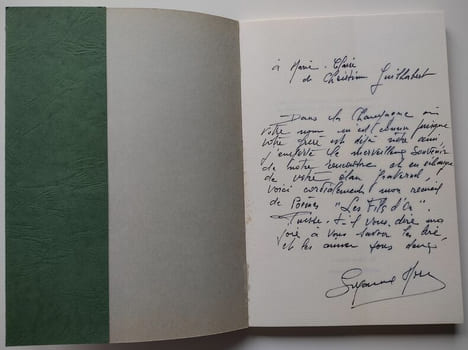 à Marie-Claire
de Christian Guilhabert
- Dans la Champagne où
votre nom m'est connu puisque
votre frère est déjà notre ami,
j'emporte le merveilleux souvenir
de notre rencontre et en échange
de votre élan fraternel,
voici cordialement mon recueil
de Poèmes "Les Fils d'Or".
Puisse-t-il vous dire ma
joie à vous savoir les lire
et les aimer
Suzanne